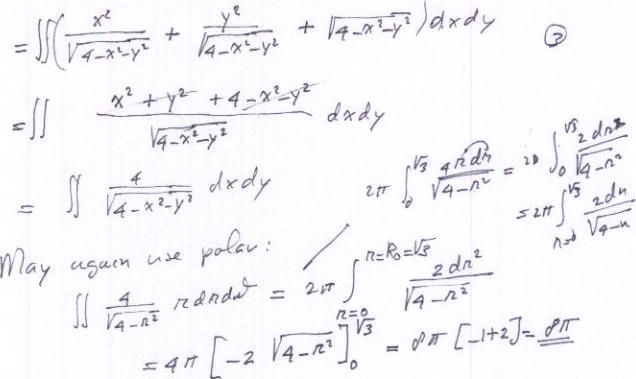 = ∬( x²/√(4-x²-y²) + y²/√(4-x²-y²) + √(4-x²-y²) ) dxdy ②
= ∬ (x² + y² + 4 - x² - y²)/√(4-x²-y²) dxdy
= ∬ 4/√(4-x²-y²) dxdy
2π ∫₀^√3 4r dr/√(4-r²) = 2π ∫₀^√3 2dr²/√(4-r²)
= 2π ∫_{r=0}^√3 2du/√(4-u)
May again use polar:
∬ 4/√(4-r²) r dr dω = 2π ∫_{r=0}^{r=R₀=√3} 2dr²/√(4-r²)
= 4π [-2 √(4-r²)]₀^√3 = 8π [-1+2] = 8π